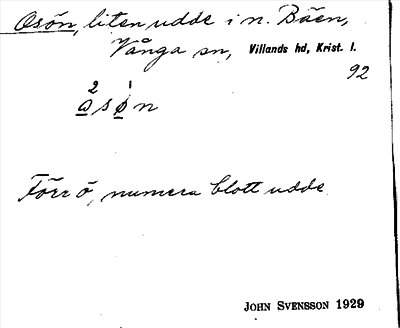 Osön, liten udde i n. Bäen,
Vånga sn, Villands hd, Krist. l.
92
2 1
a s ø n
Förr ö, numera blott udde
JOHN SVENSSON 1929